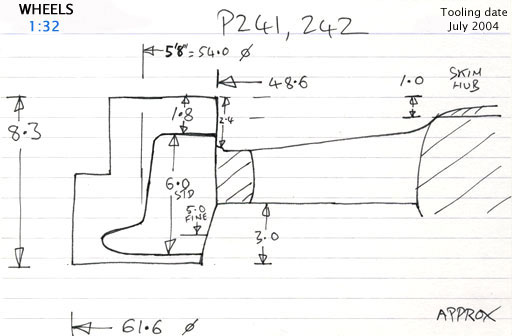 WHEELS
1:32
P241, 242
Tooling date
July 2004
5'8" = 54.0 ⌀
48.6
1.0
SKIM
HUB
8.3
1.8
2.4
6.0
STD
5.0
FINE
3.0
61.6 ⌀
APPROX